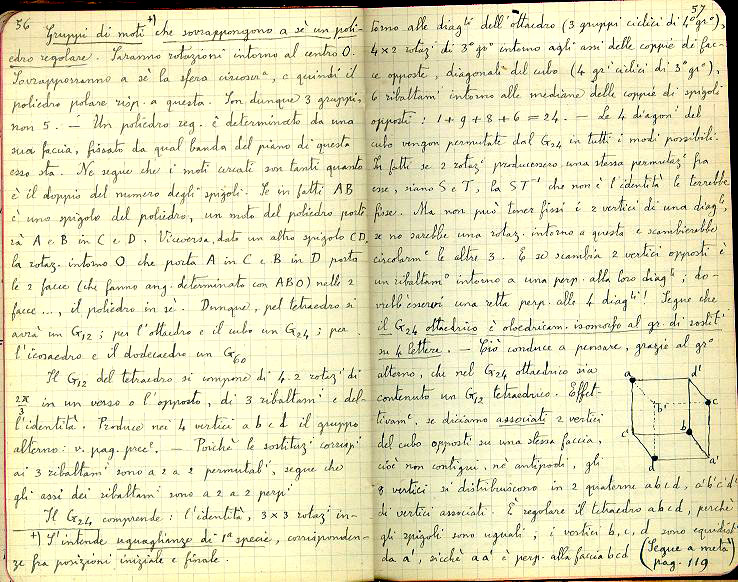 56
Gruppi di moti +) che sovrappongono a sè un poli-
edro regolare. Saranno rotazioni intorno al centro O.
Sovrapporranno a sè la sfera circoscr.a, e quindi il
poliedro polare risp. a questa. Son dunque 3 gruppi,
non 5. — Un poliedro reg. è determinato da una
sua faccia, fissato da qual banda del piano di questa
esso sta. Ne segue che i moti cercati son tanti quanto
è il doppio del numero degli spigoli. Se in fatti AB
è uno spigolo del poliedro, un moto del poliedro porte
rà A e B in C e D. Viceversa, dato un altro spigolo CD,
la rotaz. intorno O che porta A in C e B in D porta
le 2 facce (che fanno ang. determinato con ABO) nelle 2
facce ..., il poliedro in sè. Dunque, pel tetraedro si
avrà un G12; per l'ottaedro e il cubo un G24; per
l'icosaedro e il dodecaedro un G60
Il G12 del tetraedro si compone di 4.2 rotazi di
2π/3 in un verso o l'opposto, di 3 ribaltami e del-
l'identità. Produce nei 4 vertici a b c d il gruppo
alterno: v. pag. prece. — Poichè le sostituzi corrispi
ai 3 ribaltami sono a 2 a 2 permutabi, segue che
gli assi dei ribaltami sono a 2 a 2 perpi
Il G24 comprende: l'identità, 3×3 rotazi in-
+) S'intende uguaglianze di 1a specie, corrisponden-
ze fra posizioni iniziale e finale.
57
torno alle diagli dell'ottaedro (3 gruppi ciclici di 4º grº),
4×2 rotazi di 3º grº intorno agli assi delle coppie di fac-
ce opposte, diagonali del cubo (4 gri ciclici di 3º grº),
6 ribaltami intorno alle mediane delle coppie di spigoli
opposti: 1+9+8+6=24. — Le 4 diagoni del
cubo vengon permutate dal G24 in tutti i modi possibili.
In fatti se 2 rotazi producessero una stessa permutazi fra
esse, siano S e T, la ST-1 che non è l'identità le terrebbe
fisse. Ma non può tener fissi i 2 vertici di una diagle,
se no sarebbe una rotaz. intorno a questa e scambierebbe
circolarme le altre 3. E se scambia 2 vertici opposti è
un ribaltamº intorno a una perp. alla loro diagle; do-
vrebb'esservi una retta perp. alle 4 diagli! Segue che
il G24 ottaedrico è oloedricam. isomorfo al gr. di sostiti
su 4 lettere. — Ciò conduce a pensare, grazie al grº
alterno, che nel G24 ottaedrico sia
contenuto un G12 tetraedrico. Effet-
tivame, se diciamo associati 2 vertici
del cubo opposti su una stessa faccia,
cioè non contigui, nè antipodi, gli
8 vertici si distribuiscono in 2 quaterne abcd, a'b'c'd'
di vertici associati. È regolare il tetraedro abcd, perchè
gli spigoli sono uguali; i vertici b, c, d sono equidisti
da a', sicchè aa' è perp. alla faccia bcd (Segue a metà
pag. 119
a
d'
b'
c
c'
b
d
a'